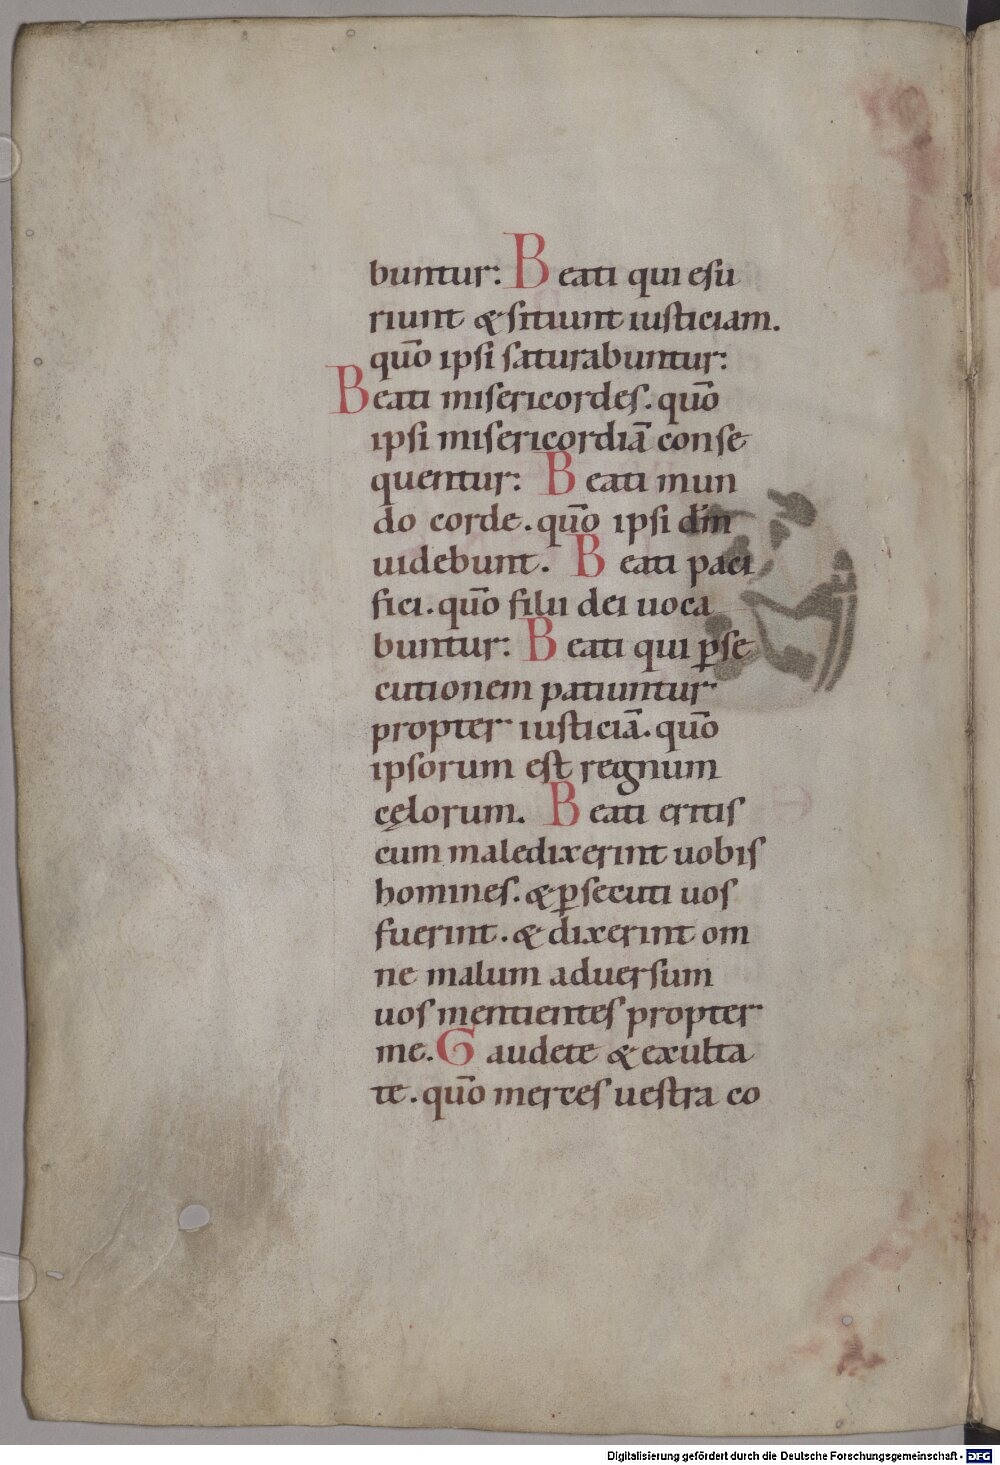 buntur: Beati qui esu
riunt & sitiunt iusticiam.
quō ipsi saturabuntur:
Beati misericordes. quō
ipsi misericordiā conse
quentur: Beati mun
do corde. quō ipsi dm̄
uidebunt. Beati paci
fici. quō filii dei uoca
buntur: Beati qui ꝑse
cutionem patiuntur
propter iusticiā. quō
ipsorum est regnum
cęlorum. Beati eritis
cum maledixerint uobis
homines. & ꝑsecuti uos
fuerint. & dixerint om
ne malum aduersum
uos mentientes propter
me. Gaudete & exulta
te. quō merces uestra co
Digitalisierung gefördert durch die Deutsche Forschungsgemeinschaft - DFG